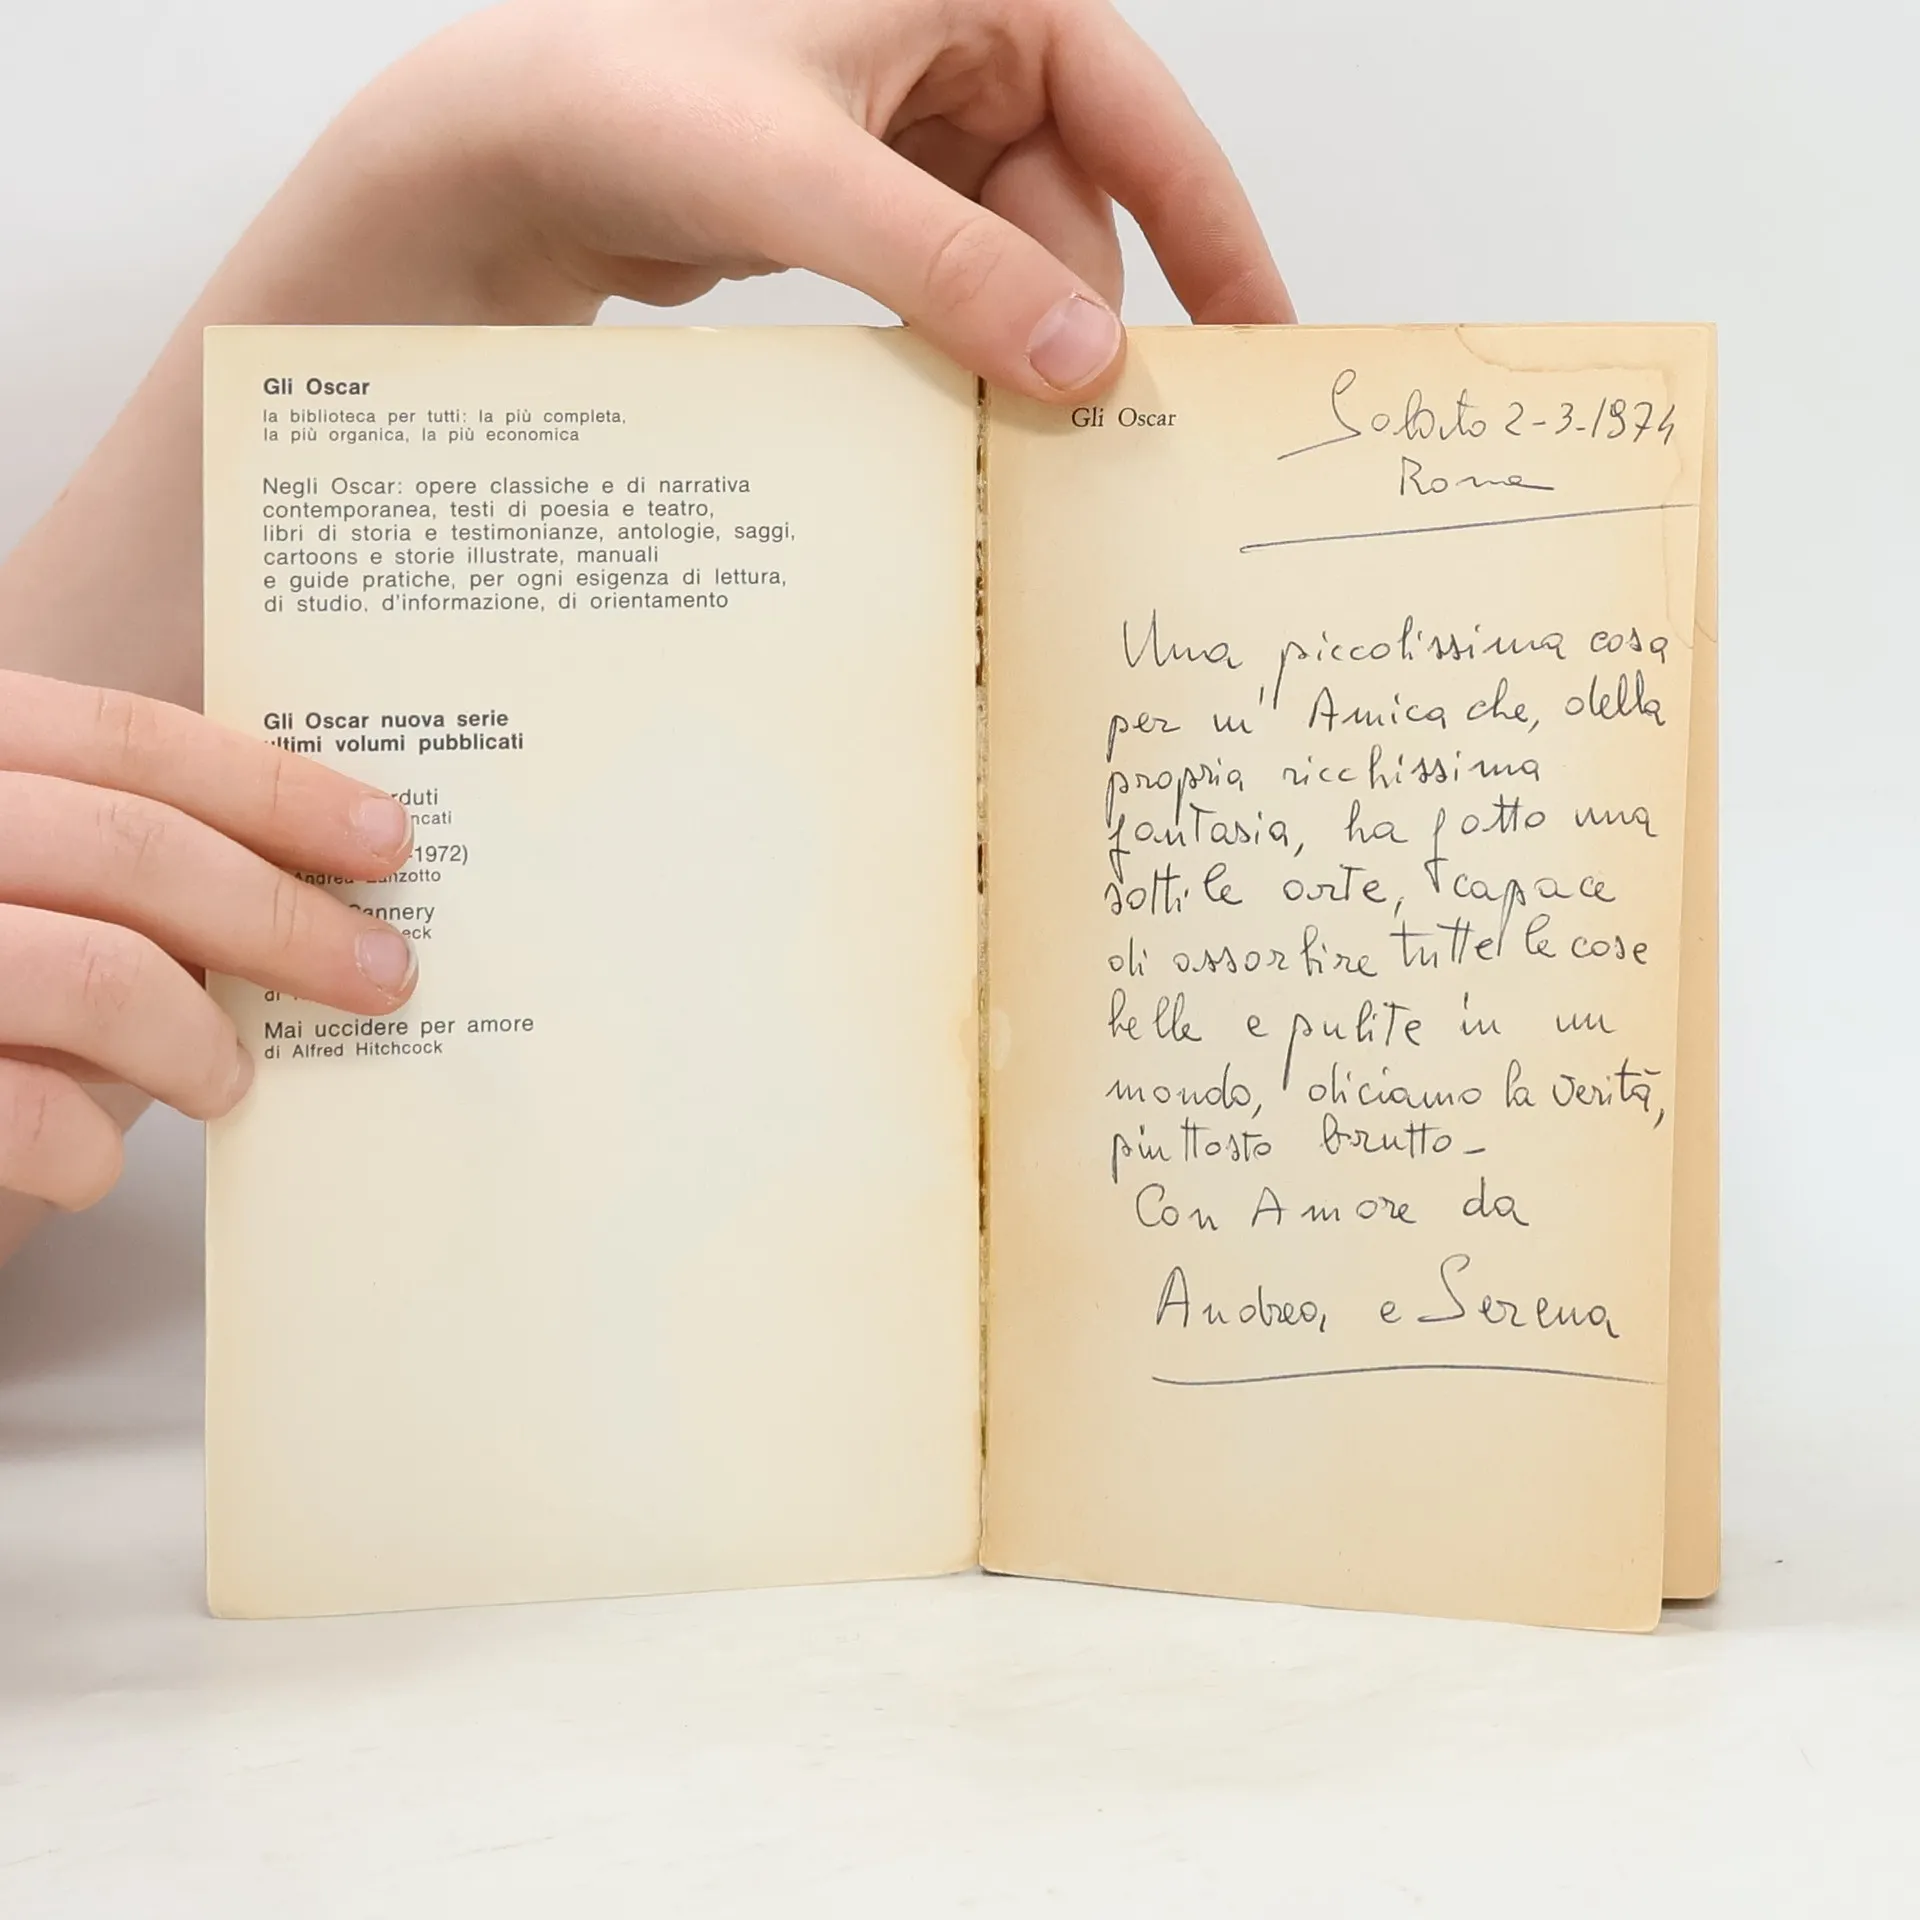 Gli Oscar
la biblioteca per tutti: la più completa,
la più organica, la più economica
Negli Oscar: opere classiche e di narrativa
contemporanea, testi di poesia e teatro,
libri di storia e testimonianze, antologie, saggi,
cartoons e storie illustrate, manuali
e guide pratiche, per ogni esigenza di lettura,
di studio, d'informazione, di orientamento
Gli Oscar nuova serie
ultimi volumi pubblicati
rduti
ncati
-1972)
Andrea Zanzotto
Cannery
eck
di
Mai uccidere per amore
di Alfred Hitchcock
Gli Oscar
Sabato 2-3-1974
Roma
Una piccolissima cosa
per un' Amica che, della
propria ricchissima
fantasia, ha fatto una
sottile arte, capace
di assorbire tutte le cose
belle e pulite in un
mondo, diciamo la verità,
piuttosto brutto -
Con Amore da
Andrea e Serena